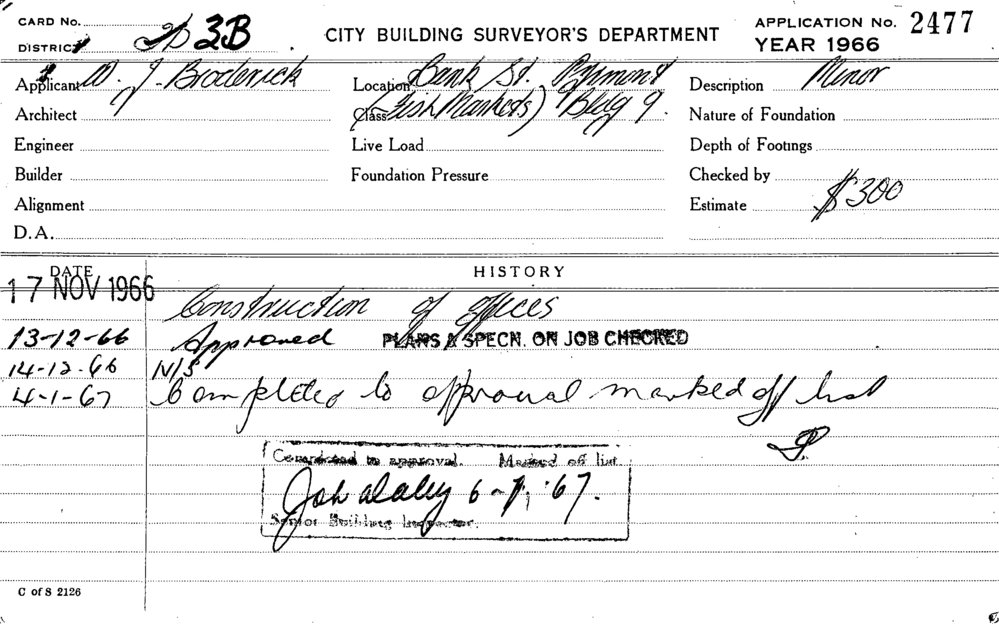 CARD No.
DISTRICT 3B
CITY BUILDING SURVEYOR'S DEPARTMENT
APPLICATION No. 2477
YEAR 1966
Applicant W. J. Broderick
Location Bank St. Pyrmont
Description Minor
Architect
Class (Fish Markets) Bldg 9.
Nature of Foundation
Engineer
Live Load
Depth of Footings
Builder
Foundation Pressure
Checked by
Alignment
Estimate $300
D.A.
DATE
HISTORY
17 NOV 1966 Construction of offices
13-12-66 Approved PLANS & SPECN. ON JOB CHECKED
14-12-66 N/S
4-1-67 Completed to approval marked off list
Completed to approval. Marked off list.
Daley 6-1-'67.
Senior Building Inspector.
C of S 2126